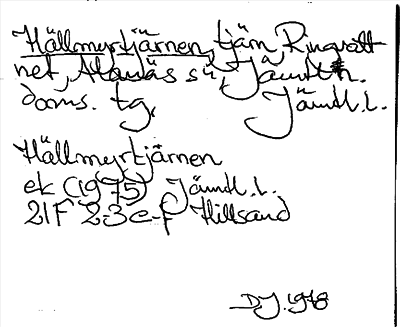 Hällmyrtjärnen, tjärn, Ringvatt
net, Alanäs sn, Jämtl. n.
doms. tg, Jämtl. l.
Hällmyrtjärnen
ek (1975) Jämtl. l.
21F 2-3 e-f Hillsand
DJ. 1978